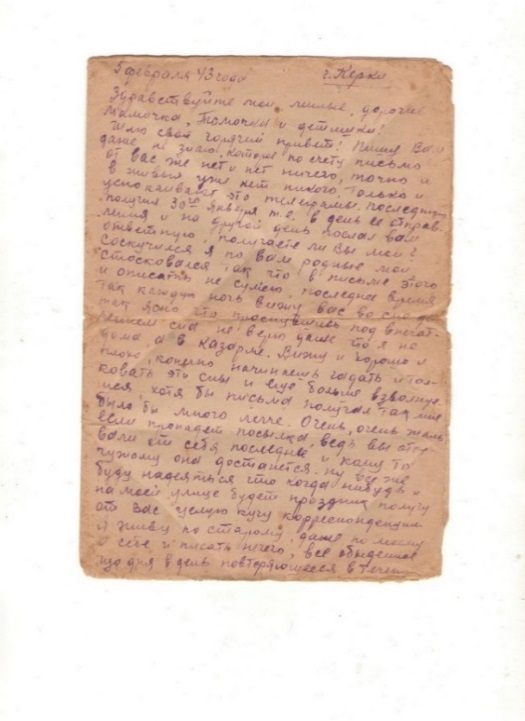 5 февраля 43 года г. Керки
Здравствуйте мои милые, дорогие
мамочка, Томочка и детишки!
Шлю свой горячий привет! Пишу Вам
даже не знаю, которое по счету письмо
от вас же нет и нет ничего, точно и
в живых уже нет никого только и
успокаивают это телеграммы. Последнюю
получил 30го января т.е. в день ее отправ-
ления и на другой день послал вам
ответную, получаете ли Вы мои?
Соскучился я по вам родные мои
стосковался так что в письме этого
и описать не сумею, последнее время
так каждую ночь вижу вас во сне да
так ясно что проснувшись под впечат-
лением сна не верю даже что я не
дома, а в казарме. Вижу и хорошо и
плохо, конечно начинаешь гадать и тол-
ковать эти сны и еще больше взволнуе-
шся, хотя бы письма получал так мне
было бы много легче. Очень, очень жаль
если пропадет посылка, ведь вы отор-
вали от себя последнее и кому то
чужому она достанется. Ну все же
буду надеяться что когда нибудь и
на моей улице будет праздник получу
от Вас целую кучу корреспонденции
Я живу по старому, даже по моему
о себе и писать нечего, все обыденное
изо дня в день повторяющееся в течен